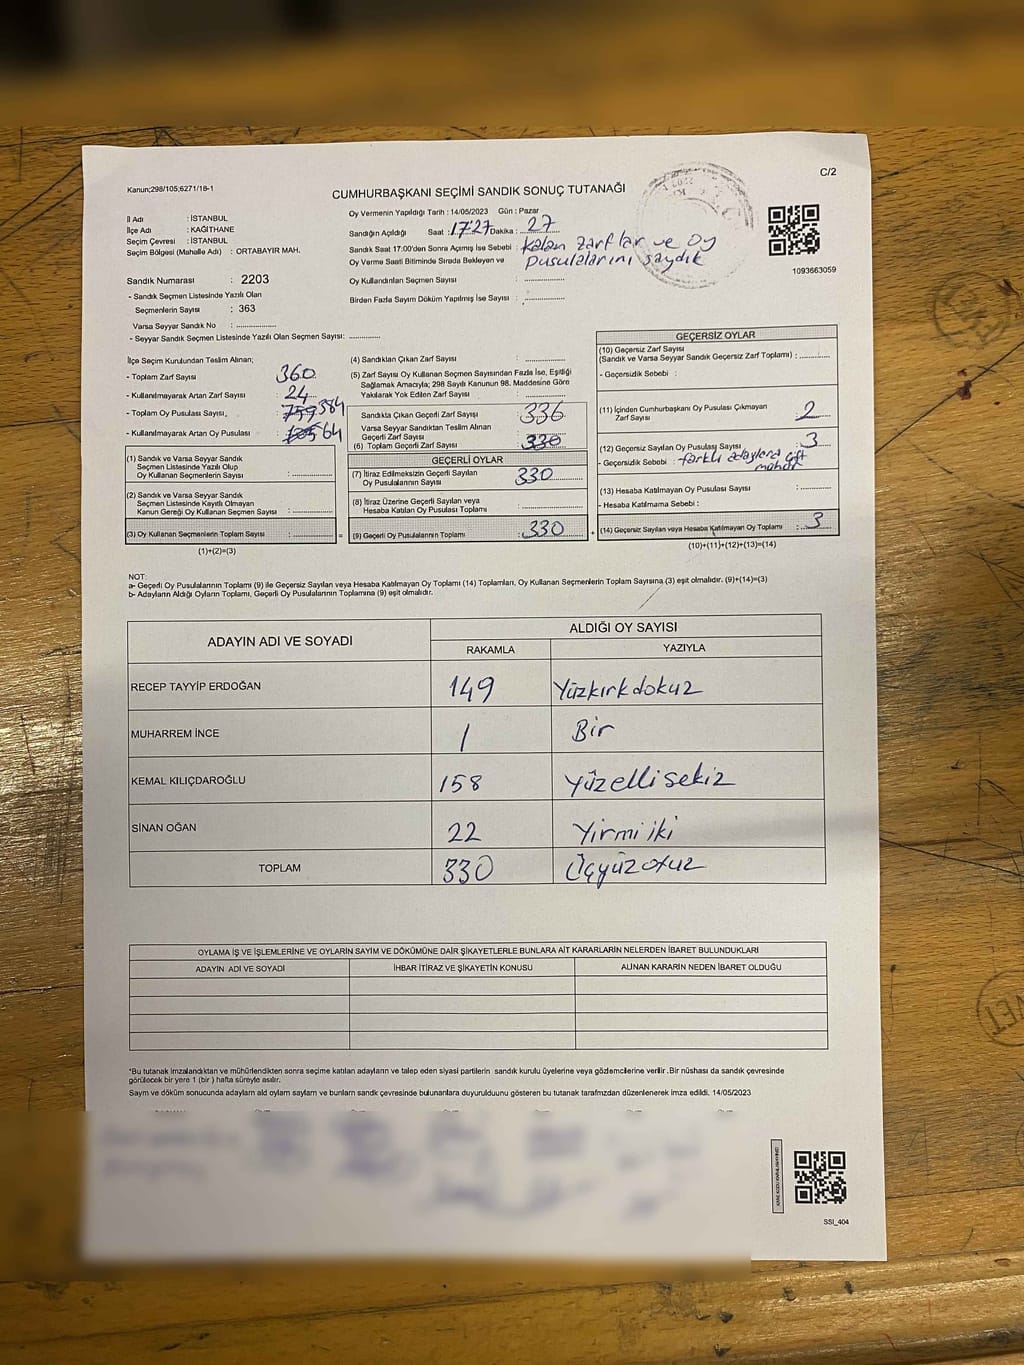 Kanun;298/105;6271/16-1
C/2
CUMHURBAŞKANI SEÇİMİ SANDIK SONUÇ TUTANAĞI
İl Adı : İSTANBUL
İlçe Adı : KAĞITHANE
Seçim Çevresi : İSTANBUL
Seçim Bölgesi (Mahalle Adı) : ORTABAYIR MAH.
Oy Vermenin Yapıldığı Tarih : 14/05/2023 Gün : Pazar
Sandığın Açıldığı Saat : 17:27 Dakika : 27
Sandık Saat 17:00'den Sonra Açımış İse Sebebi : Kalan zarflar ve oy
Oy Verme Saati Bitiminde Sırada Bekleyen ve pusulalarını saydık
Oy Kullandırılan Seçmen Sayısı :
Birden Fazla Sayım Döküm Yapılmış İse Sayısı :
1093663059
Sandık Numarası : 2203
- Sandık Seçmen Listesinde Yazılı Olan
Seçmenlerin Sayısı : 363
Varsa Seyyar Sandık No :
- Seyyar Sandık Seçmen Listesinde Yazılı Olan Seçmen Sayısı:
İlçe Seçim Kurulundan Teslim Alınan;
- Toplam Zarf Sayısı : 360
- Kullanılmayarak Artan Zarf Sayısı : 24
- Toplam Oy Pusulası Sayısı : 384
- Kullanılmayarak Artan Oy Pusulası : 64
(1) Sandık ve Varsa Seyyar Sandık
Seçmen Listesinde Yazılı Olup
Oy Kullanan Seçmenlerin Sayısı :
(2) Sandık ve Varsa Seyyar Sandık
Seçmen Listesinde Kayıtlı Olmayan
Kanun Gereği Oy Kullanan Seçmen Sayısı :
(3) Oy Kullanan Seçmenlerin Toplam Sayısı :
(1)+(2)=(3)
(4) Sandıktan Çıkan Zarf Sayısı :
(5) Zarf Sayısı Oy Kullanan Seçmen Sayısından Fazla İse, Eşitliği
Sağlamak Amacıyla; 298 Sayılı Kanunun 98. Maddesine Göre
Yakılarak Yok Edilen Zarf Sayısı :
Sandıkta Çıkan Geçerli Zarf Sayısı : 336
Varsa Seyyar Sandıktan Teslim Alınan
Geçerli Zarf Sayısı :
(6) Toplam Geçerli Zarf Sayısı : 330
GEÇERLİ OYLAR
(7) İtiraz Edilmeksizin Geçerli Sayılan
Oy Pusulalarının Sayısı : 330
(8) İtiraz Üzerine Geçerli Sayılan veya
Hesaba Katılan Oy Pusulası Toplamı :
= (9) Geçerli Oy Pusulalarının Toplamı : 330 +
GEÇERSİZ OYLAR
(10) Geçersiz Zarf Sayısı
(Sandık ve Varsa Seyyar Sandık Geçersiz Zarf Toplamı) :
- Geçersizlik Sebebi :
(11) İçinden Cumhurbaşkanı Oy Pusulası Çıkmayan
Zarf Sayısı : 2
(12) Geçersiz Sayılan Oy Pusulası Sayısı : 3
- Geçersizlik Sebebi : farklı adaylara çift
mühür
(13) Hesaba Katılmayan Oy Pusulası Sayısı :
- Hesaba Katılmama Sebebi :
(14) Geçersiz Sayılan veya Hesaba Katılmayan Oy Toplamı : 3
(10)+(11)+(12)+(13)=(14)
NOT:
a- Geçerli Oy Pusulalarının Toplamı (9) ile Geçersiz Sayılan veya Hesaba Katılmayan Oy Toplamı (14) Toplamları, Oy Kullanan Seçmenlerin Toplam Sayısına (3) eşit olmalıdır. (9)+(14)=(3)
b- Adayların Aldığı Oyların Toplamı, Geçerli Oy Pusulalarının Toplamına (9) eşit olmalıdır.
ADAYIN ADI VE SOYADI
ALDIĞI OY SAYISI
RAKAMLA YAZIYLA
RECEP TAYYİP ERDOĞAN 149 Yüzkırkdokuz
MUHARREM İNCE 1 Bir
KEMAL KILIÇDAROĞLU 158 Yüzellisekiz
SİNAN OĞAN 22 Yirmi iki
TOPLAM 330 Üçyüzotuz
OYLAMA İŞ VE İŞLEMLERİNE VE OYLARIN SAYIM VE DÖKÜMÜNE DAİR ŞİKAYETLERLE BUNLARA AİT KARARLARIN NELERDEN İBARET BULUNDUKLARI
ADAYIN ADI VE SOYADI İHBAR İTİRAZ VE ŞİKAYETİN KONUSU ALINAN KARARIN NEDEN İBARET OLDUĞU
*Bu tutanak imzalandıktan ve mühürlendikten sonra seçime katılan adayların ve talep eden siyasi partilerin sandık kurulu üyelerine veya gözlemcilerine verilir .Bir nüshası da sandık çevresinde
görülecek bir yere 1 (bir ) hafta süreyle asılır.
Sayım ve döküm sonucunda adayların aldı oyların sayların ve bunların sandk çevresinde bulunanlara duyurulduunu gösteren bu tutanak tarafmzdan düzenlenerek imza edildi. 14/05/2023
SSİ_404